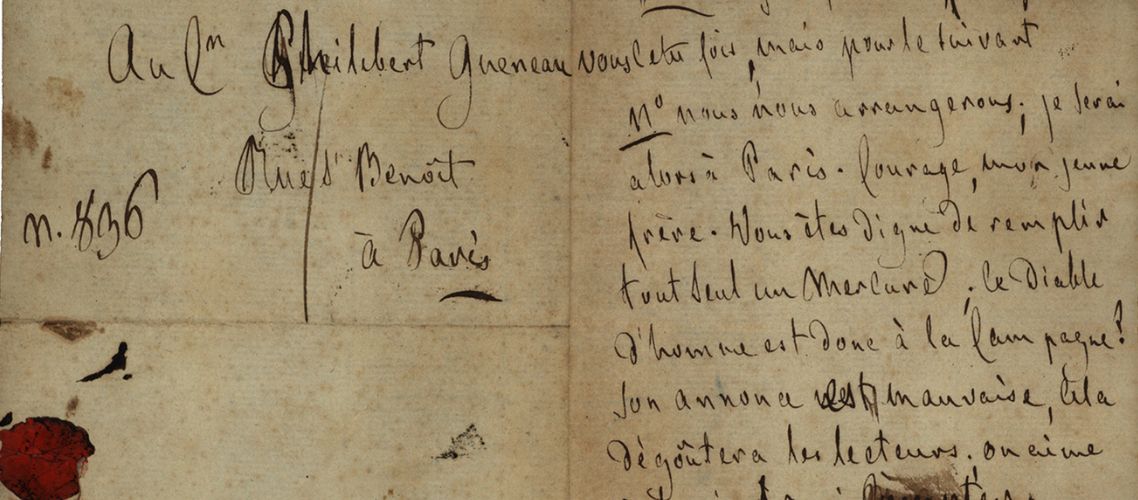 Au Cn Philibert Gueneau
Rue St Benoît
n. 836
à Paris
vous cette fois, mais pour le suivant
n° nous nous arrangerons; je serai
alors à Paris. Courage, mon jeune
frère. Vous êtes digne de remplir
tout seul un Mercure; ce Diable
d'homme est donc à la Campagne?
Son annonce est mauvaise, cela
dégoûtera les lecteurs; on aime